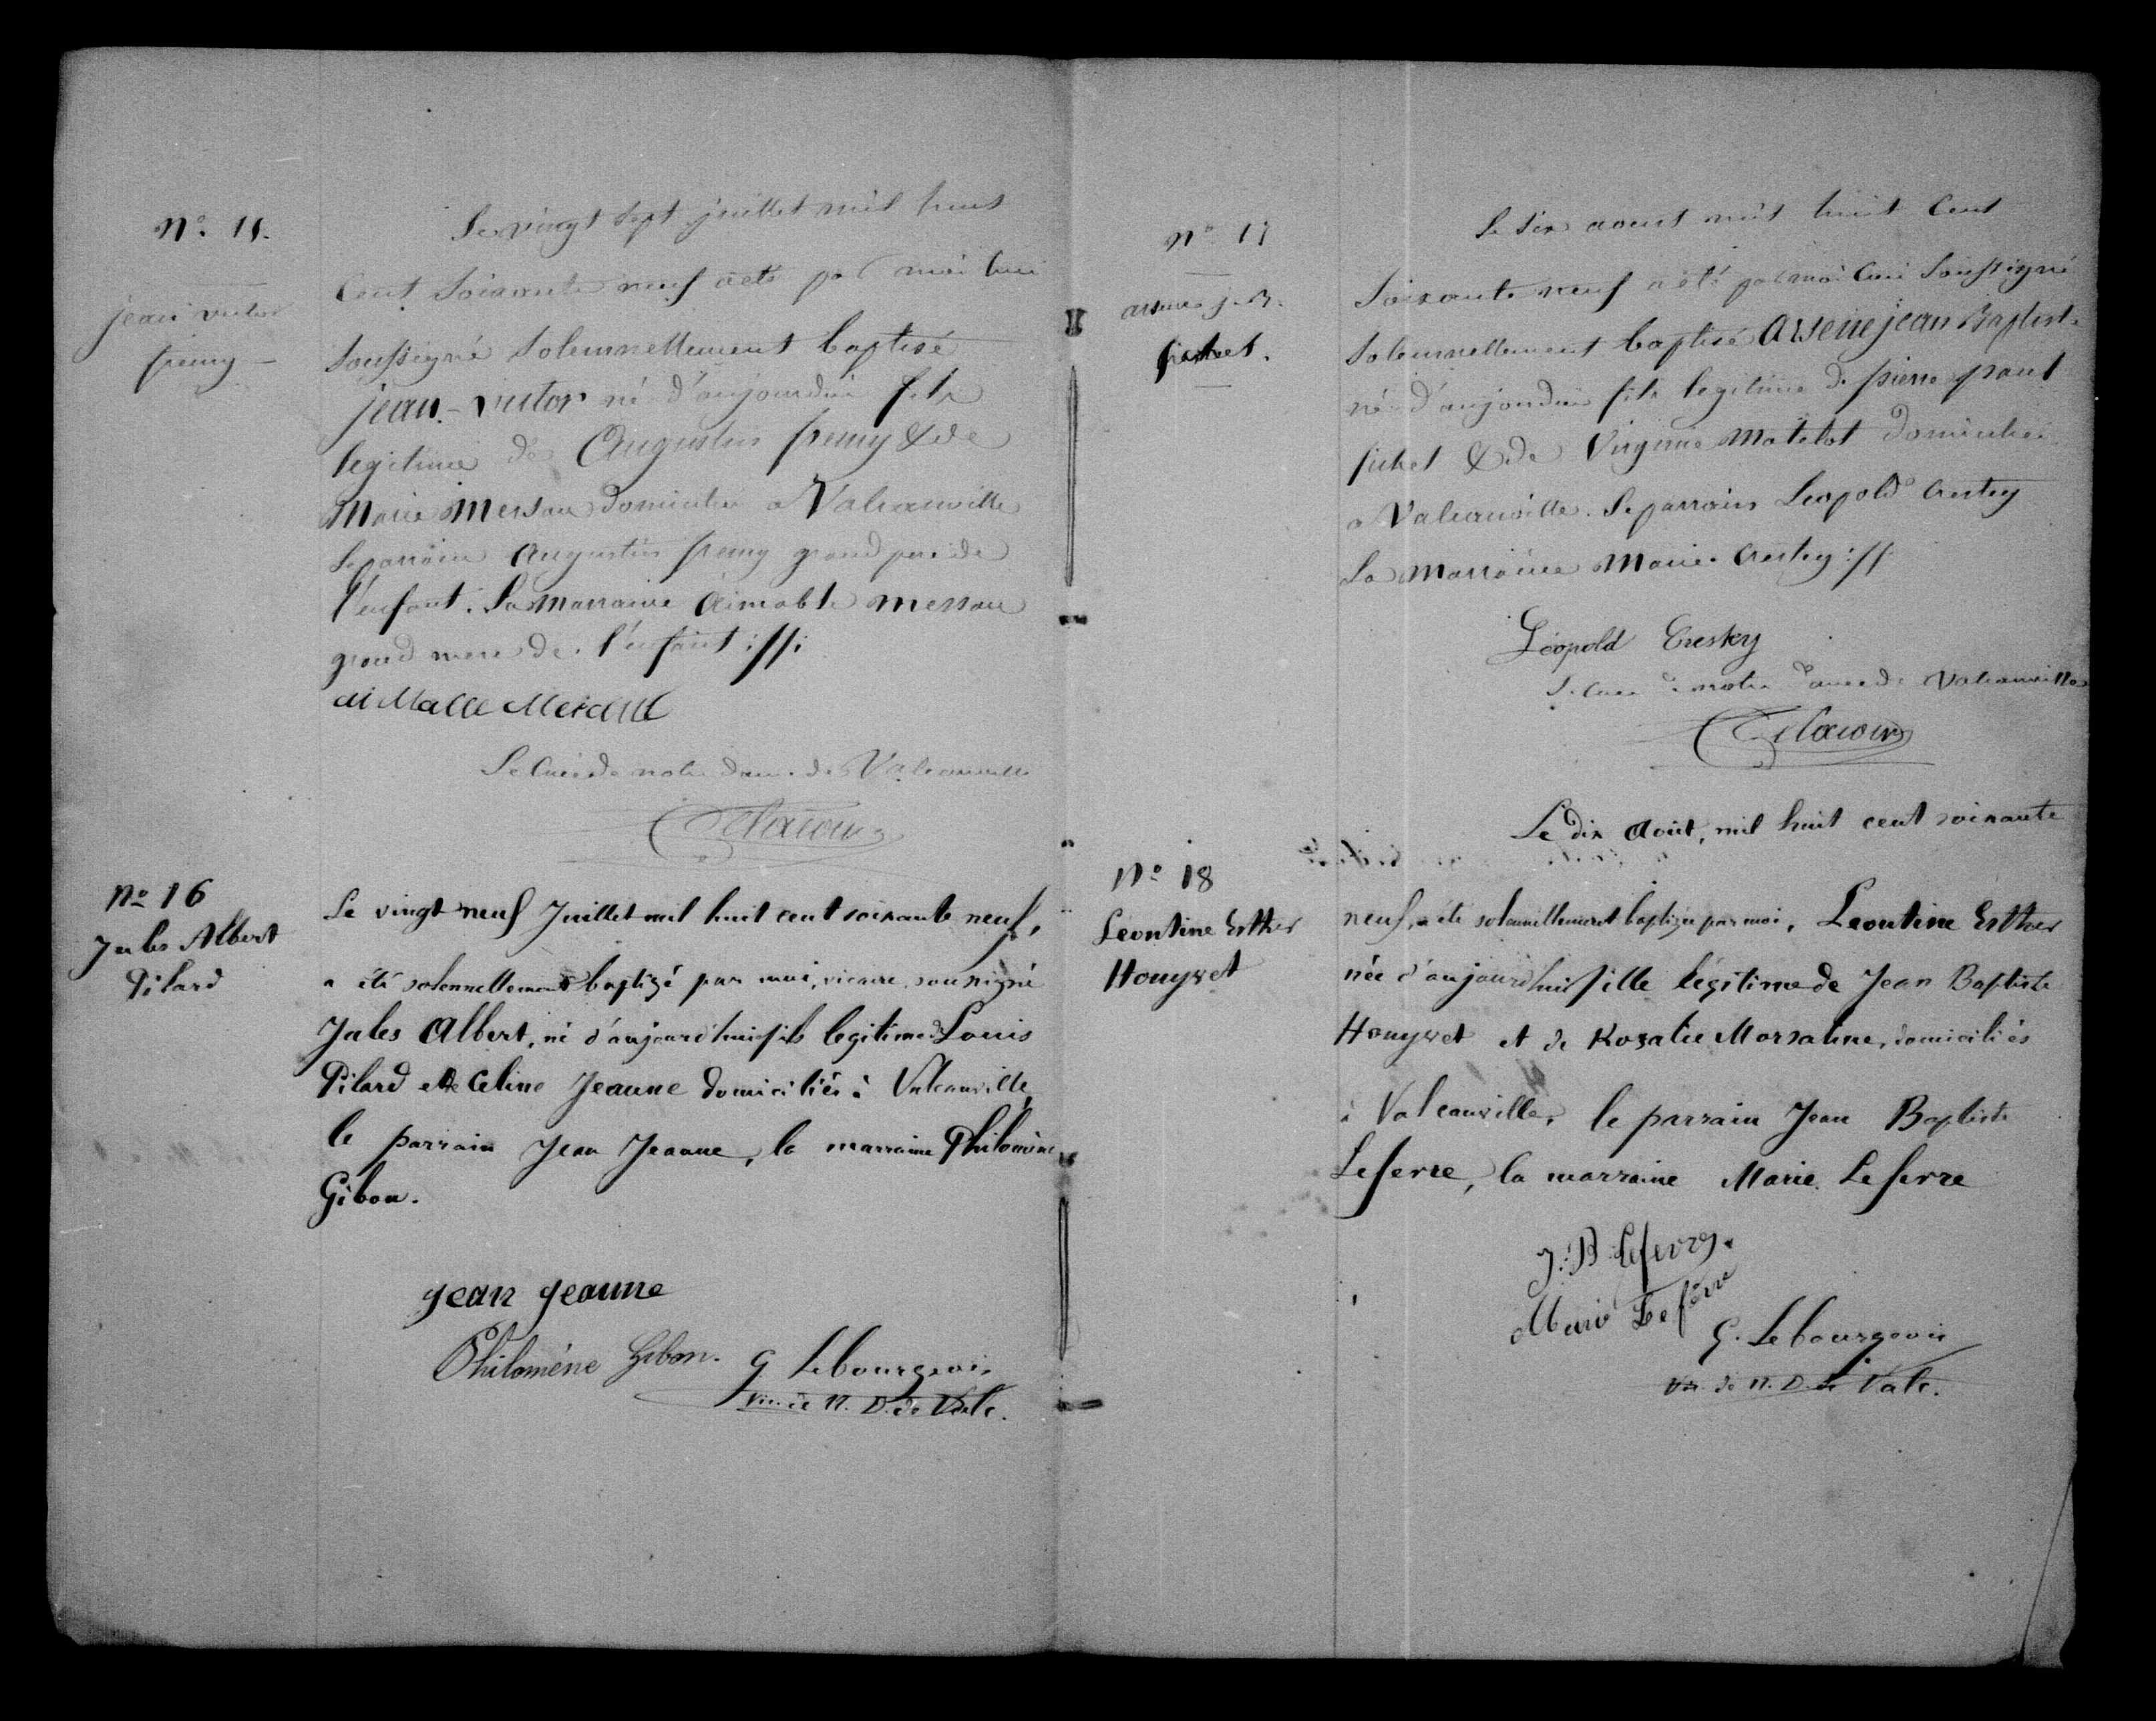 N.° 15.
jean victor
fremy —
Le vingt sept juillet mil huit
Cent Soixante neuf a été par moi Curé
Soussigné Solemnellement baptisé
jean - victor né d'aujourdui fils
legitime de Augustin fremy & de
Marie Mersau domiciliés a Valcanville
Le parrain Augustin fremy grand pere de
l'enfant. La Marraine Aimable mersau
grand mere de l'enfant ://:
Le Curé de notre dame de Valcanville
Delacour
N° 16
Jules Albert
Pilard
Le vingt neuf Juillet mil huit cent soixante neuf,
a été solennellement baptizé par moi, vicaire soussigné
Jules Albert, né d'aujourd'hui fils legitime de Louis
Pilard et de Celine Jeanne domiciliés à Valcanville,
le parrain Jean Jeanne, la marraine Philomène
Gibon.
jean jeanne
Philoméne Gibon.
G Lebourgeois
Vic. de N. D. de Valc.
N° 17
arsene j. B.
fichet.
Le six aout mil huit Cent
Soixante neuf a été par moi Curé Soussigné
Solemnellement baptisé Arsene jean Baptiste
né d'aujourdui fils legitime de pierre paul
fichet & de Virginie Matelot domiciliés
a Valcanville. Le parrain Leopold Crestey
La Marraine Marie Crestey ://
Léopold Crestey
Le Curé de notre dame de Valcanville
Delacour
N° 18
Leontine Esther
Houyvet
Le dix Août, mil huit cent soixante
neuf, a été solennellement baptizée par moi, Leontine Esther
née d'aujourd'hui fille légitime de Jean Baptiste
Houyvet et de Rozalie Morsaline, domiciliés
à Valcanville, le parrain Jean Baptiste
Lefevre, la marraine Marie Lefevre
J. B Lefevre.
Marie Lefevre
G. Lebourgeois
Vic. de N. D. de Valc.